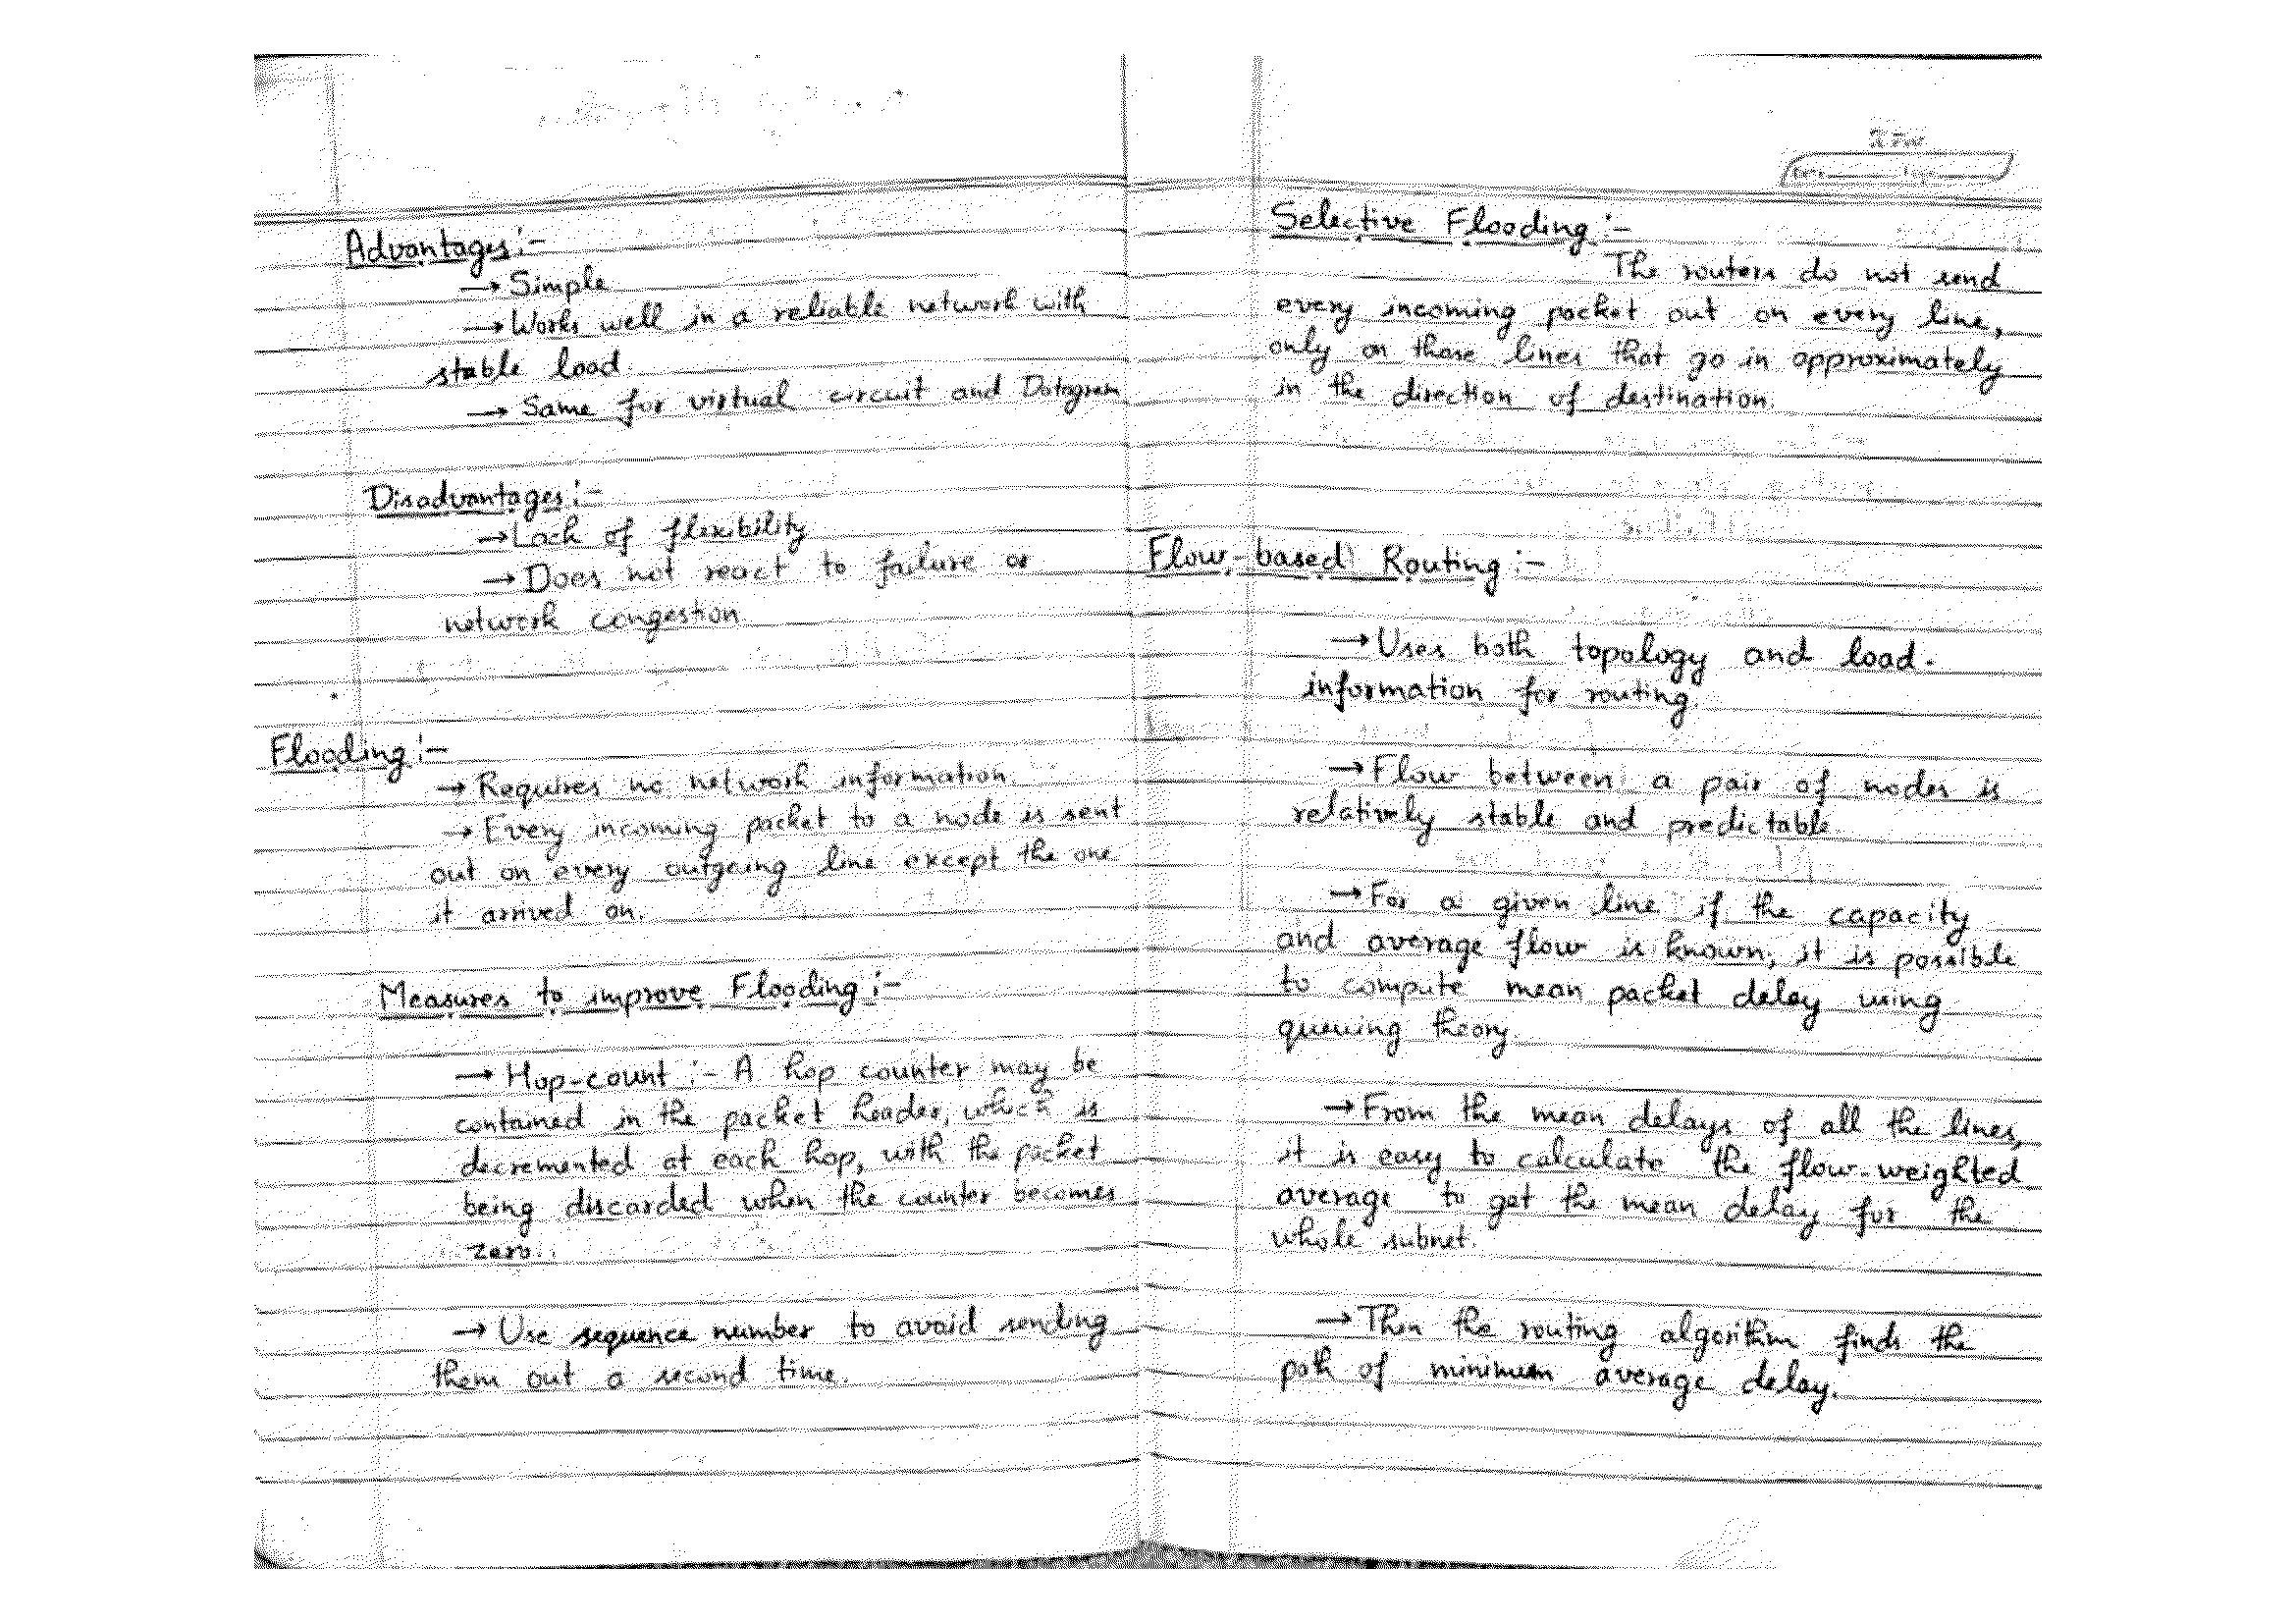 Advantages:-
→ Simple
→ Works well in a reliable network with
stable load.
→ Same for virtual circuit and Datagram
Disadvantages:-
→ Lack of flexibility
→ Does not react to failure or
network congestion.
Flooding:-
→ Requires no network information.
→ Every incoming packet to a node is sent
out on every outgoing line except the one
it arrived on.
Measures to improve Flooding:-
→ Hop-count :- A hop counter may be
contained in the packet header, which is
decremented at each hop, with the packet
being discarded when the counter becomes
zero.
→ Use sequence number to avoid sending
them out a second time.
Selective Flooding:-
The routers do not send
every incoming packet out on every line,
only on those lines that go in approximately
in the direction of destination.
Flow-based Routing:-
→ Uses both topology and load.
information for routing.
→ Flow between a pair of nodes is
relatively stable and predictable.
→ For a given line if the capacity
and average flow is known, it is possible
to compute mean packet delay using
queuing theory.
→ From the mean delays of all the lines,
it is easy to calculate the flow-weighted
average to get the mean delay for the
whole subnet.
→ Then the routing algorithm finds the
path of minimum average delay.